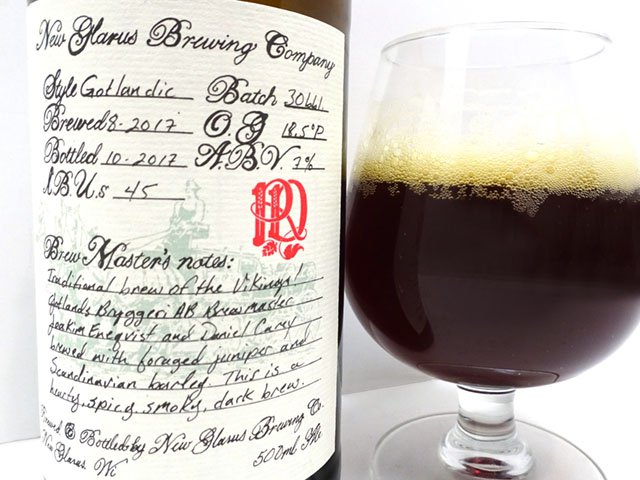 New Glarus Brewing Company
Style Gotlandic Batch 30bbl.
Brewed 8-2017 O.G 18.5°P
Bottled 10-2017 A.B.V. 7%
I.B.U.s 45
Brew Master's notes:
Traditional brew of the Vikings!
Gotlands Bryggeri AB Brewmaster
Joakim Eneqvist and Daniel Carey
brewed with foraged juniper and
Scandinavian barley. This is a
hearty, spicy, smoky, dark brew.
Brewed & Bottled by New Glarus Brewing Co.
New Glarus, Wi 500ml Ale